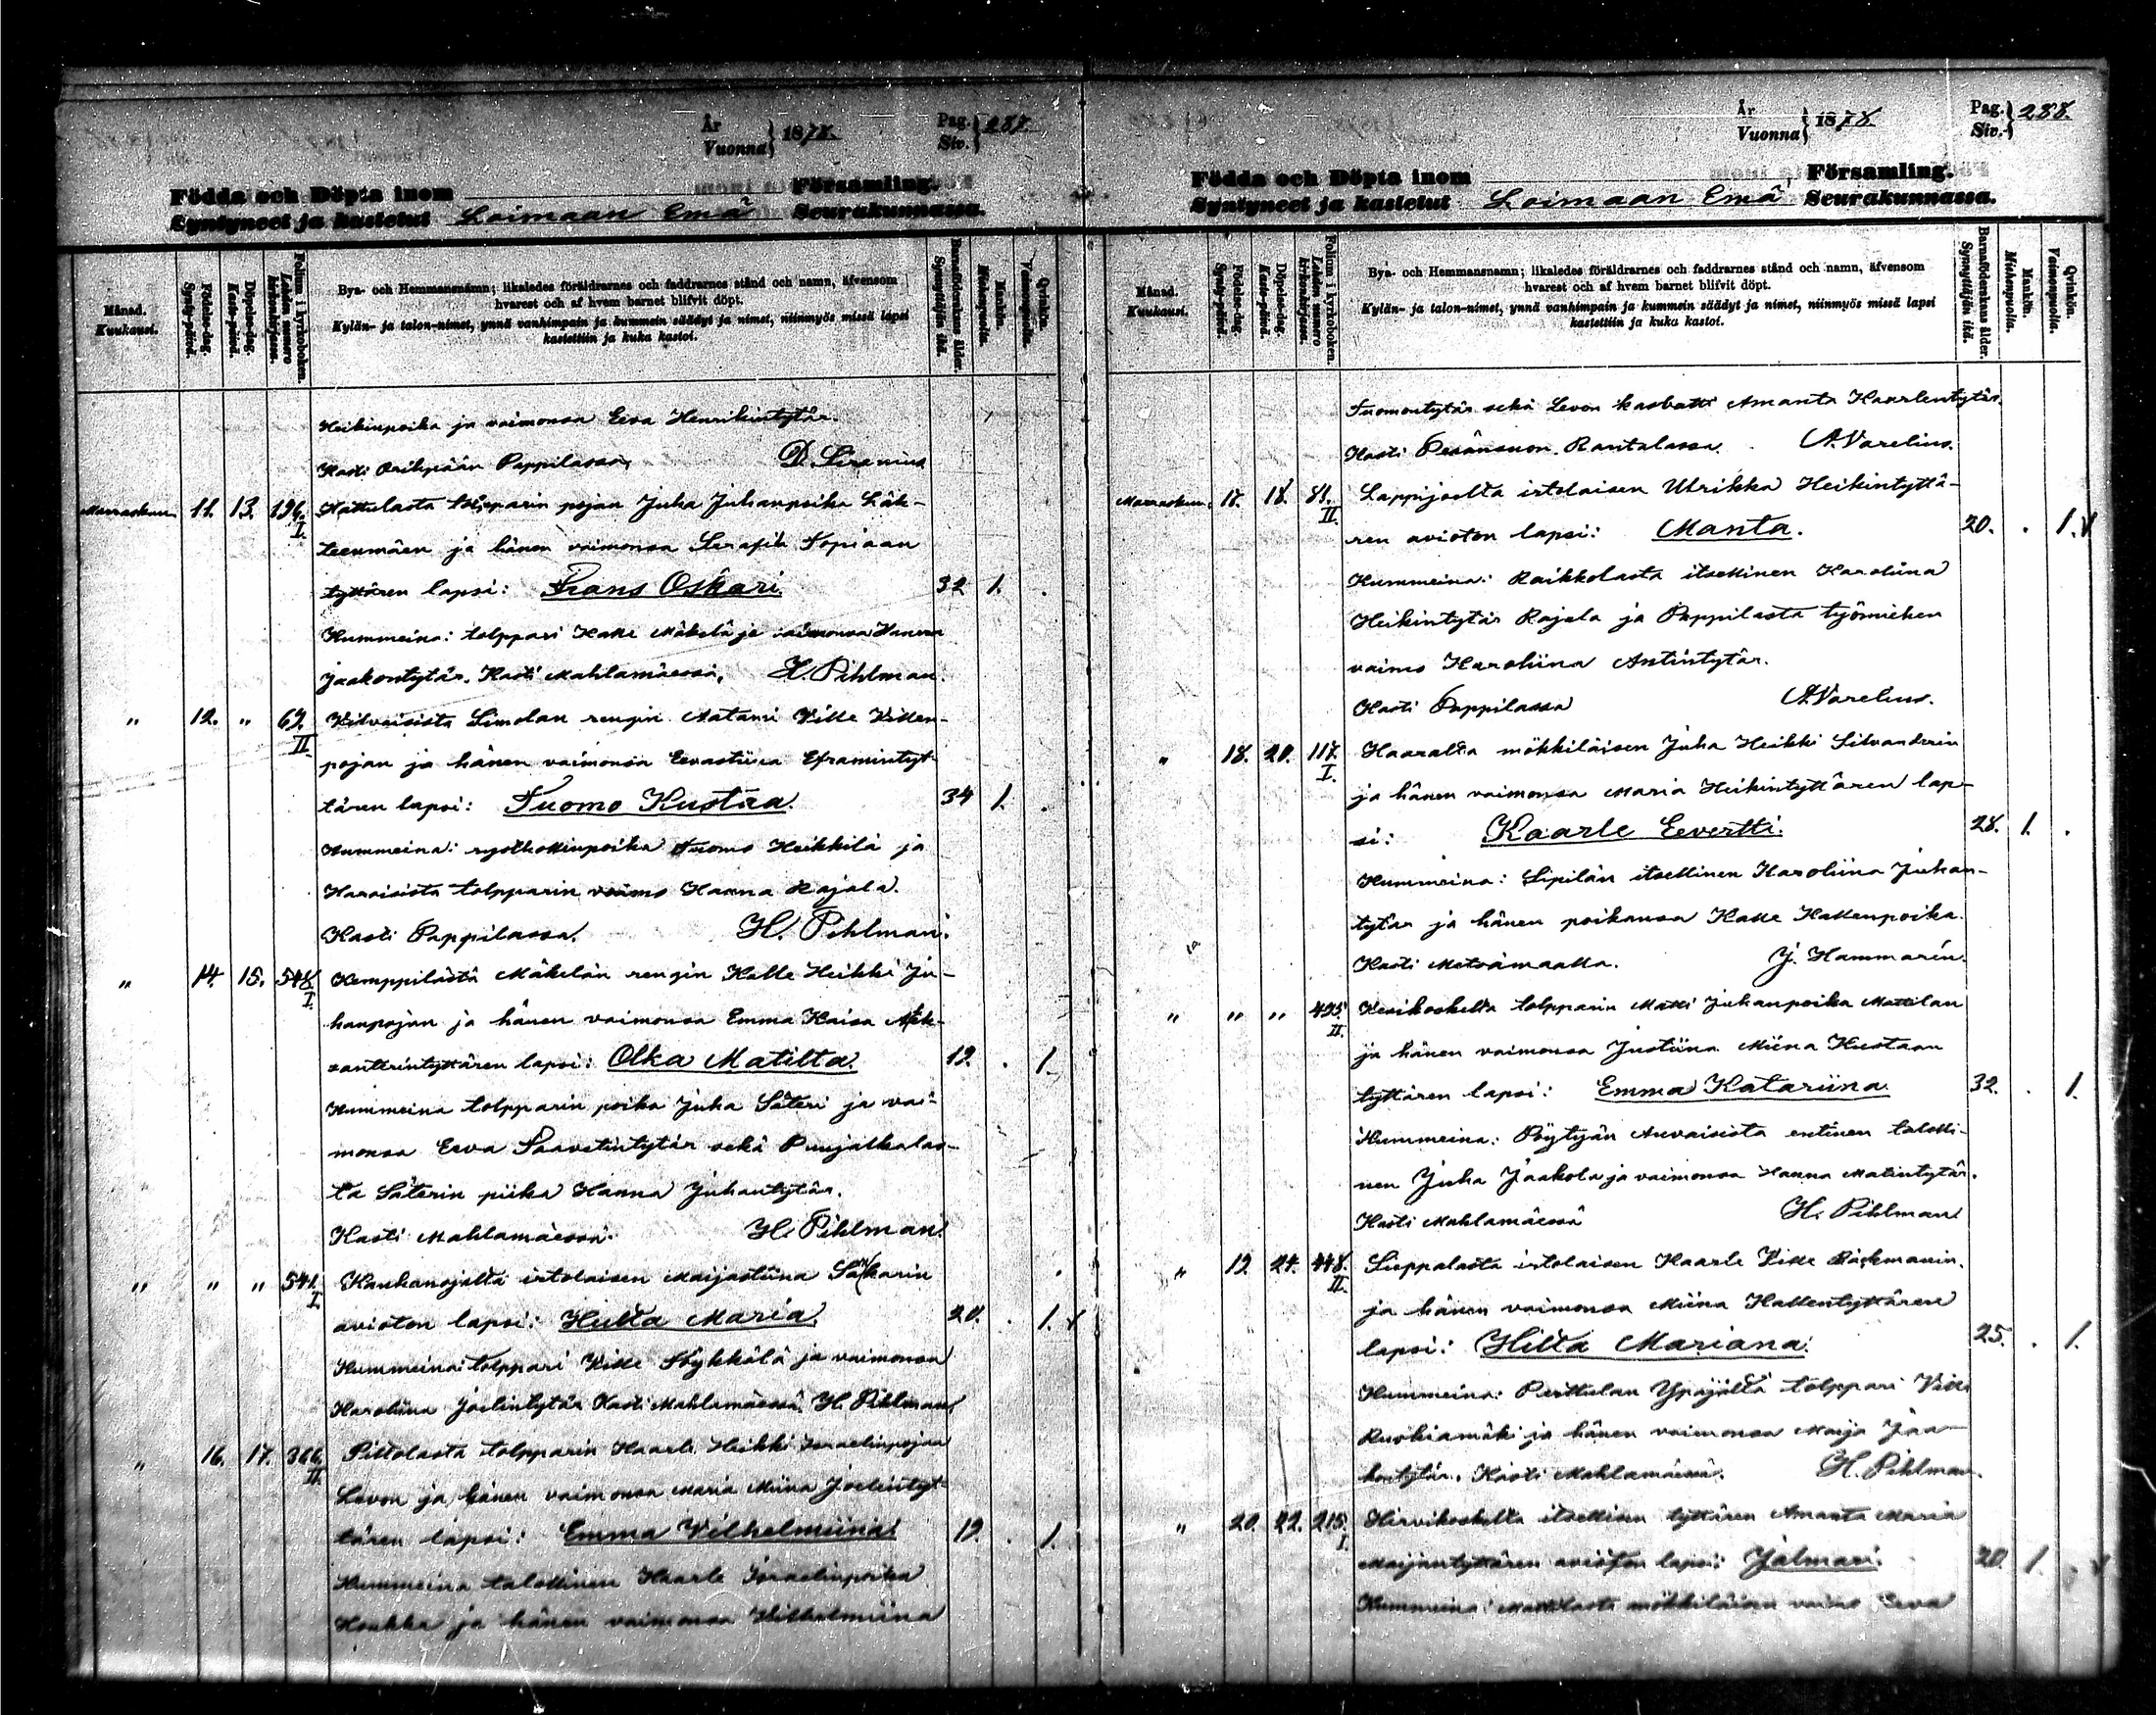 År
Vuonna } 1878.
Pag.
Siv. } 287.
Födda och Döpta inom Församling.
Syntyneet ja kastetut Loimaan Emä Seurakunnassa.
Månad.
Kuukausi.
Födelse-dag.
Synty-päivä.
Döpelse-dag.
Kaste-päivä.
Folium i kyrkoboken.
Lehden numero kirkonkirjassa.
Bya- och Hemmansnamn; likaledes föräldrarnes och faddrarnes stånd och namn, äfvensom
hvarest och af hvem barnet blifvit döpt.
Kylän- ja talon-nimet, ynnä vanhimpain ja kummein säädyt ja nimet, niinmyös missä lapsi
kastettiin ja kuka kastoi.
Barnaföderskans ålder.
Synnyttäjän ikä.
Mankön.
Miehenpuolia.
Qvinkön.
Vaimonpuolia.
Heikinpoika ja vaimonsa Eeva Henrikintytär.
Kasti Orihpään Pappilassa, D. Sirenius
Marraskuu 11. 13. 196. I. Kattulasta tolpparin pojan Juha Juhanpoika Läh-
teenmäen ja hänen vaimonsa Serafia Topiaan
tyttären lapsi: Frans Oskari. 32 1. .
Kummeina: tolppari Kalle Mäkelä ja vaimonsa Hanna
Jaakontytär. Kasti Mahlamäessä, H. Pihlman.
" 12. " 67. II. Simolan rengin Aatami Ville Villen-
pojan ja hänen vaimonsa Eevastiina Eframintyt-
tären lapsi: Tuomo Kustaa. 34 1. .
Kummeina: Tuomo Heikkilä ja
tolpparin vaimo Hanna Rajala.
Kasti Pappilassa. H. Pihlman.
" 14. 15. 548. I. Kemppilästä Mäkelän rengin Kalle Heikki Ju-
hanpojan ja hänen vaimonsa Emma Kaisa Alek-
santterintyttären lapsi: Olka Matilta. 19. . 1.
Kummeina tolpparin poika Juha Säteri ja vai-
monsa Eeva Taavetintytär sekä Punjalkalas-
ta Säterin piika Hanna Juhantytär.
Kasti Mahlamäessä. H. Pihlman.
" " " 541. I. Kauhanojalta irtolaisen Maijastiina Sakarin
avioton lapsi: Hilta Maria. 20. . 1. x
Kummeina: tolppari Ville Töykkälä ja vaimonsa
Karoliina Joelintytär Kasti Mahlamäessä. H. Pihlman.
" 16. 17. 366. II. Piltolasta tolpparin Kaarle Heikki Israelinpojan
Levon ja hänen vaimonsa Maria Miina Joelintyt-
tären lapsi: Emma Vilhelmiina. 19. . 1.
Kummeina talollinen Kaarle Israelinpoika
Houkka ja hänen vaimonsa Vilhelmiina
År
Vuonna } 1878.
Pag.
Siv. } 288.
Födda och Döpta inom Församling.
Syntyneet ja kastetut Loimaan Emä Seurakunnassa.
Månad.
Kuukausi.
Födelse-dag.
Synty-päivä.
Döpelse-dag.
Kaste-päivä.
Folium i kyrkoboken.
Lehden numero kirkonkirjassa.
Bya- och Hemmansnamn; likaledes föräldrarnes och faddrarnes stånd och namn, äfvensom
hvarest och af hvem barnet blifvit döpt.
Kylän- ja talon-nimet, ynnä vanhimpain ja kummein säädyt ja nimet, niinmyös missä lapsi
kastettiin ja kuka kastoi.
Barnaföderskans ålder.
Synnyttäjän ikä.
Mankön.
Miehenpuolia.
Qvinkön.
Vaimonpuolia.
Tuomontytär sekä Levon kasvatti Amanta Kaarlentytär.
Kasti Pesänsuon Rantalassa. A. Varelius.
Marraskuu. 17. 18. 81. II. Lappijoelta irtolaisen Ulrikka Heikintyttä-
ren avioton lapsi: Manta. 20. . 1. x
Kummeina: Raikkolasta itsellinen Karoliina
Heikintytär Rajala ja Pappilasta työmiehen
vaimo Karoliina Antintytär.
Kasti Pappilassa A. Varelius.
" 18. 20. 117. I. Haaralta mökkiläisen Juha Heikki Silvanderin
ja hänen vaimonsa Maria Heikintyttären lap-
si: Kaarle Eevertti. 28. 1. .
Kummeina: Sipilän itsellinen Karoliina Juhan-
tytär ja hänen poikansa Kalle Kallenpoika.
Kasti Metsämaalla. J. Hammarén.
" " " 495. II. Kesikoskelta tolpparin Matti Juhanpoika Mattilan
ja hänen vaimonsa Justiina Miina Kustaan
tyttären lapsi: Emma Katariina. 32. . 1.
Kummeina: Pöytyän Auvaisista entinen talolli-
nen Juha Jaakola ja vaimonsa Hanna Matintytär.
Kasti Mahlamäessä H. Pihlman
" 19. 24. 448. II. Sieppalasta irtolaisen Kaarle Ville Bäckmanin
ja hänen vaimonsa Miina Kallentyttären
lapsi: Hilta Mariana. 25. . 1.
Kummeina: Perttulan Ypäjältä tolppari Ville
Ruohiamäki ja hänen vaimonsa Maija Jaa-
kontytär. Kasti Mahlamäessä. H. Pihlman.
" 20. 22. 215. I. Hirvikoskelta itsellisen tyttären Amanta Maria
Maijantyttären avioton lapsi: Jalmari. 20. 1. . x
Kummeina: Mattilasta mökkiläisen vaimo Eeva